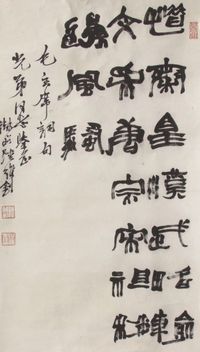 惜秦皇漢武略輸
文采唐宗宋祖稍
遜風騷
毛主席詞句
同志鑒正
陸維釗